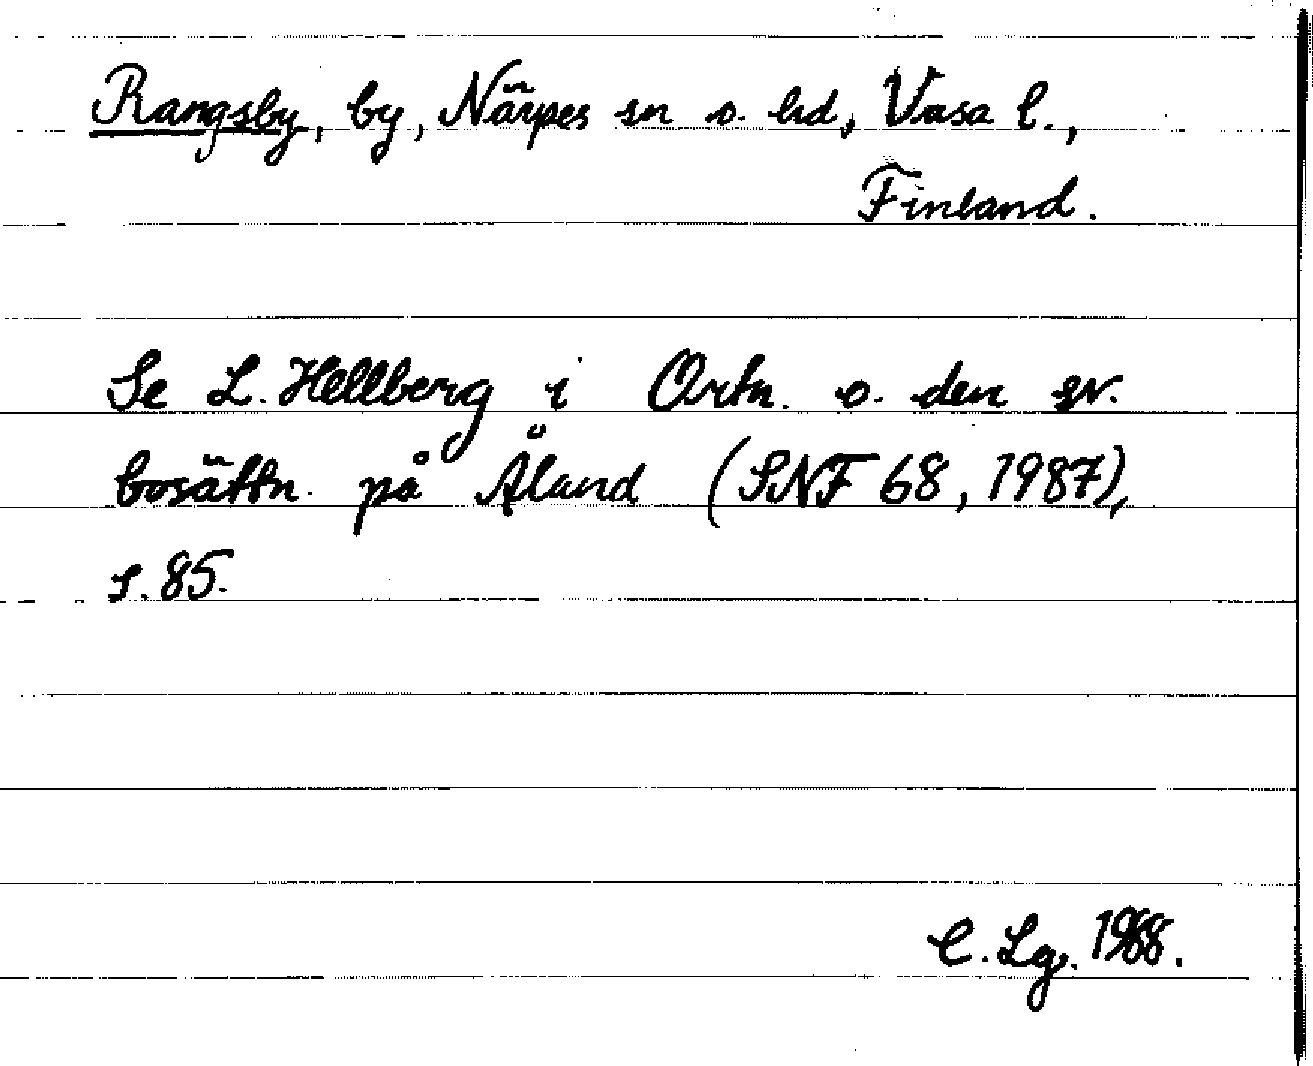 Rangsby, by, Närpes sn o. hd, Vasa l.,
Finland.
Se L. Hellberg i Ortn. o. den sv.
bosättn. på Åland (SNF 68, 1987),
s. 85.
C. Lg. 1988.